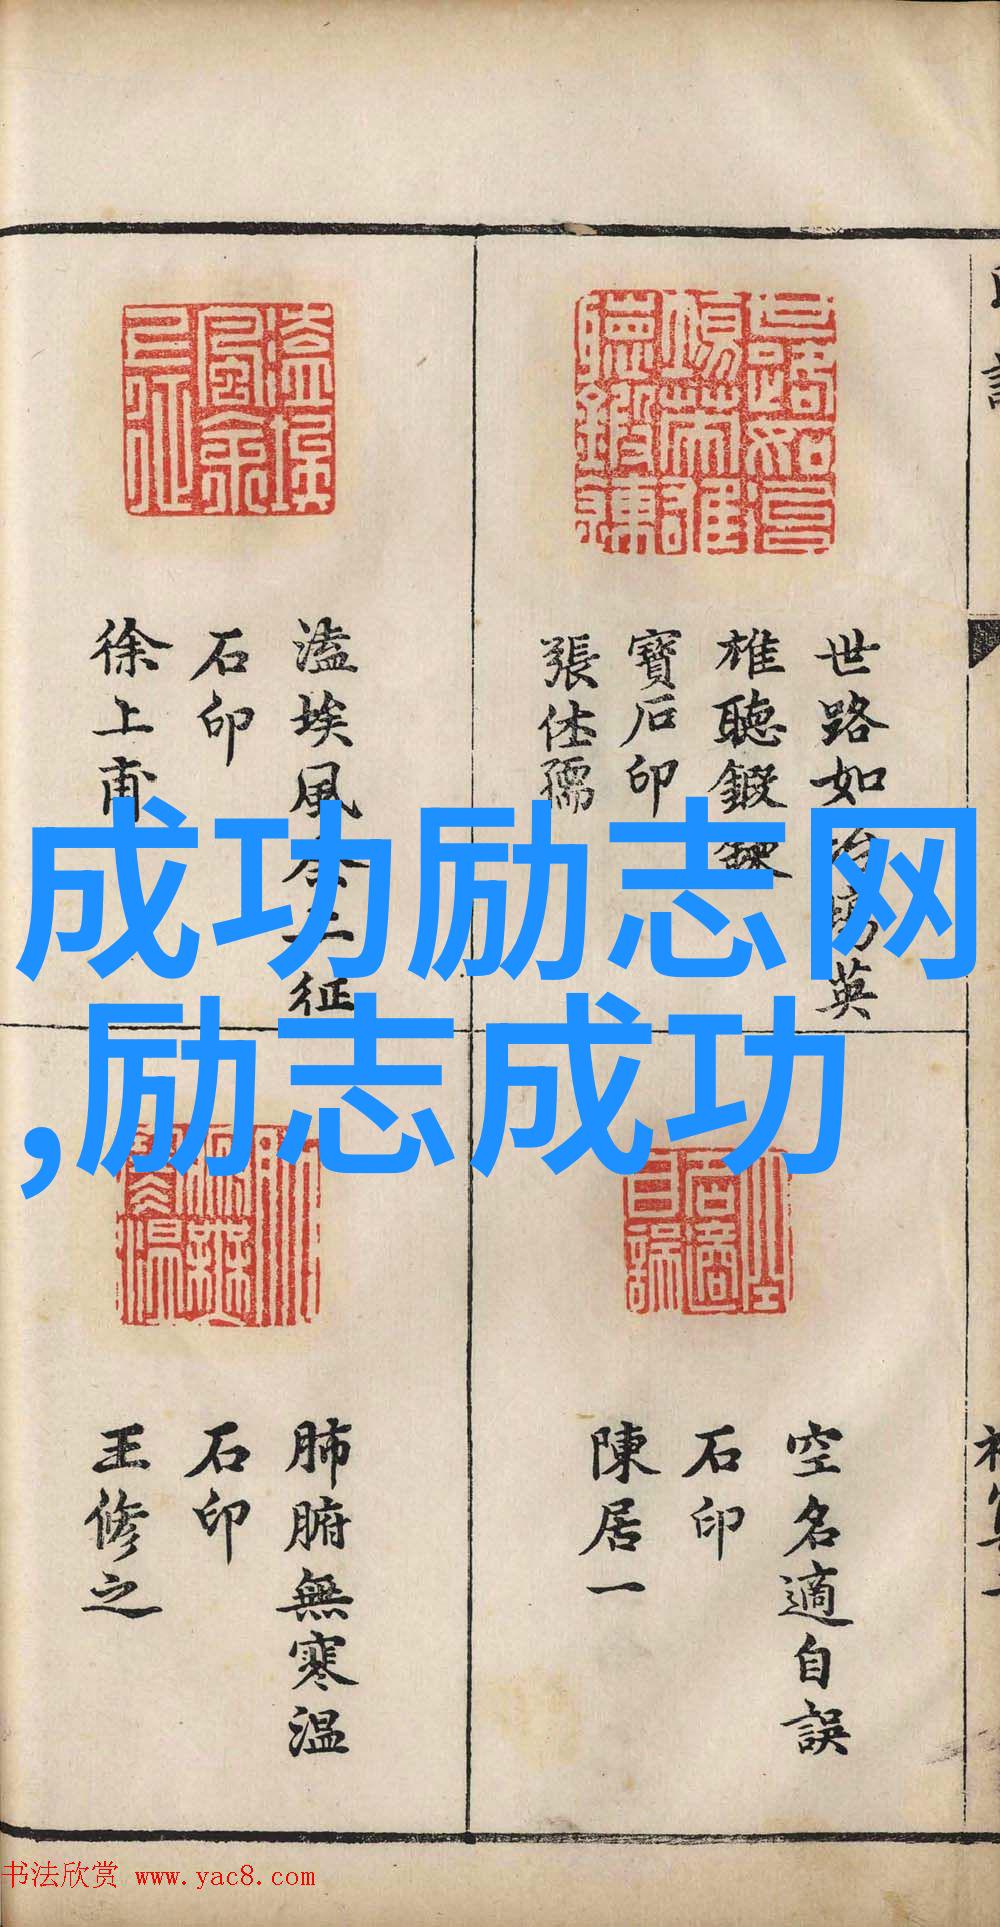 世路如冶鑄英
雄聽鍛鍊
寶石印
張仕孺
溘埃風余上征
石印
徐上甫
空名適自誤
石印
陳居一
肺腑無寒溫
石印
王修之
成功励志网
,励志成功
书法欣赏 www.yac8.com